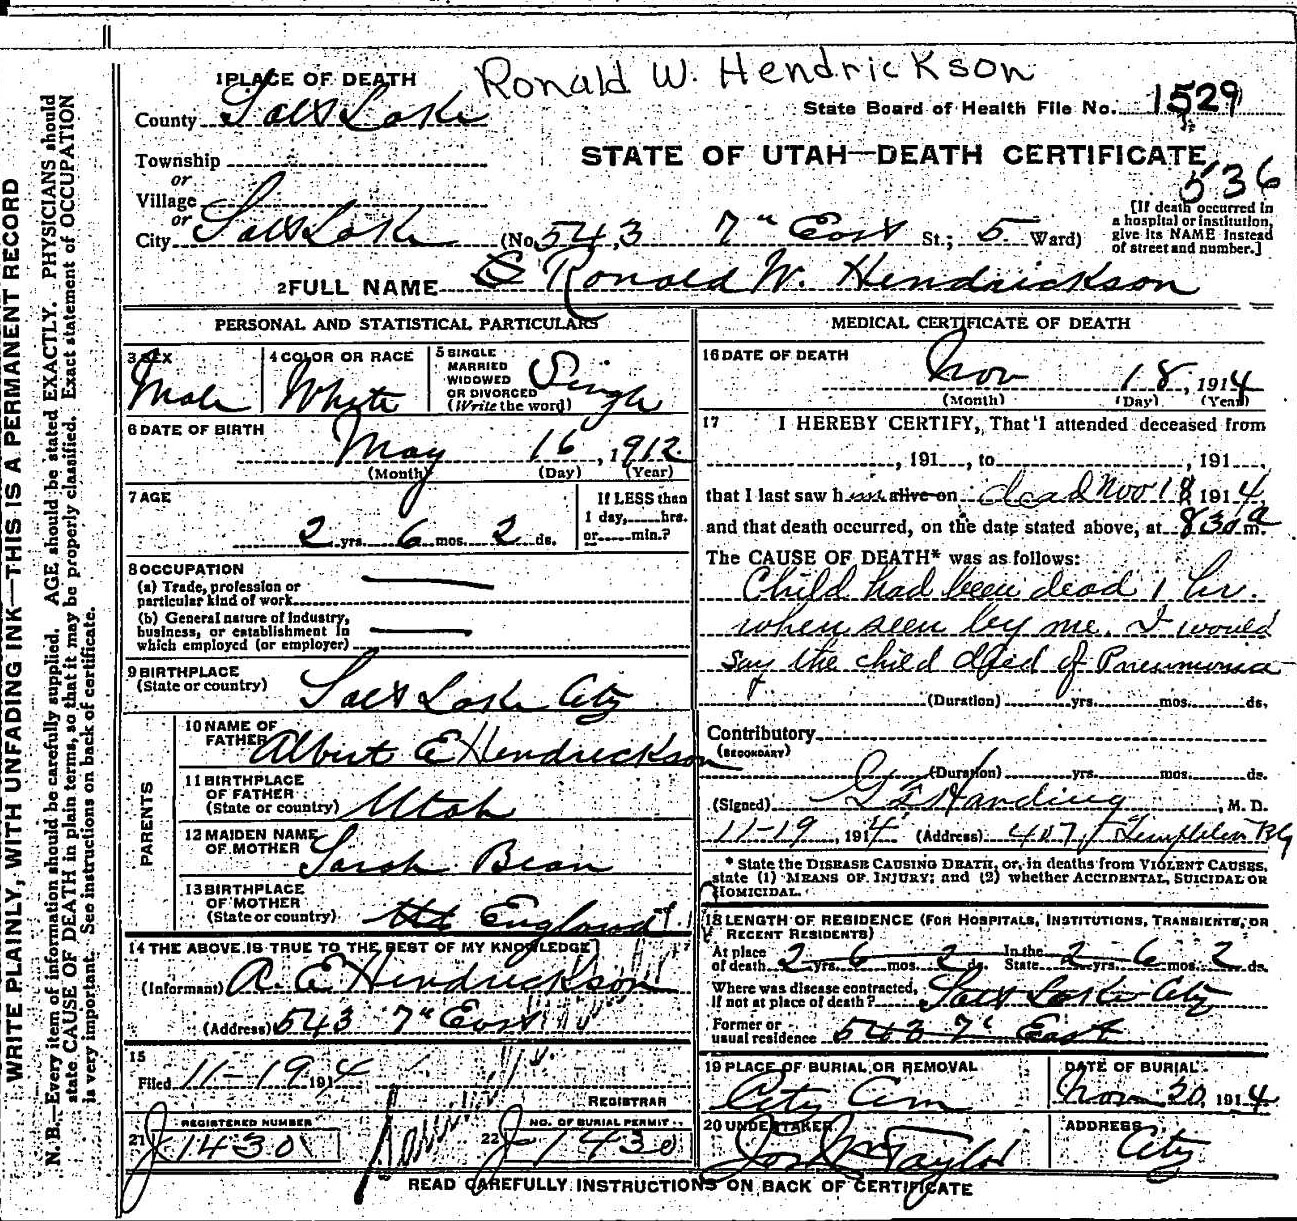 Ronald W. Hendrickson
1 PLACE OF DEATH
County Salt Lake
State Board of Health File No. 1529
Township
or
Village
or
City Salt Lake (No. 543 7" East St.; 5 Ward)
STATE OF UTAH—DEATH CERTIFICATE
536
[If death occurred in
a hospital or institution,
give its NAME instead
of street and number.]
2 FULL NAME Ronald W. Hendrickson
PERSONAL AND STATISTICAL PARTICULARS
3 SEX
Male
4 COLOR OR RACE
White
5 SINGLE
MARRIED
WIDOWED
OR DIVORCED
(Write the word)
Single
6 DATE OF BIRTH
May 16, 1912
(Month) (Day) (Year)
7 AGE
2 yrs. 6 mos. 2 ds.
If LESS than
1 day, hrs.
or min.?
8 OCCUPATION
(a) Trade, profession or
particular kind of work
(b) General nature of industry,
business, or establishment in
which employed (or employer)
9 BIRTHPLACE
(State or country) Salt Lake City
PARENTS
10 NAME OF
FATHER Albert E Hendrickson
11 BIRTHPLACE
OF FATHER
(State or country) Utah
12 MAIDEN NAME
OF MOTHER Sarah Bean
13 BIRTHPLACE
OF MOTHER
(State or country) England
14 THE ABOVE IS TRUE TO THE BEST OF MY KNOWLEDGE
(Informant) A. E. Hendrickson
(Address) 543 7" East
15
Filed 11-19 1914
REGISTRAR
21 REGISTERED NUMBER
J 1430
22 NO. OF BURIAL PERMIT
J-1430
MEDICAL CERTIFICATE OF DEATH
16 DATE OF DEATH
Nov 18, 1914
(Month) (Day) (Year)
17 I HEREBY CERTIFY, That I attended deceased from
, 191 , to , 191 ,
that I last saw h im alive on dead Nov 18 1914,
and that death occurred, on the date stated above, at 830 a m.
The CAUSE OF DEATH* was as follows:
Child had been dead 1 hr.
when seen by me. I would
say the child died of Pneumonia
(Duration) yrs. mos. ds.
Contributory
(SECONDARY)
(Duration) yrs. mos. ds.
(Signed) G F Harding, M. D.
11-19, 1914 (Address) 407 Templeton Bg
* State the DISEASE CAUSING DEATH, or, in deaths from VIOLENT CAUSES,
state (1) MEANS OF INJURY; and (2) whether ACCIDENTAL, SUICIDAL OR
HOMICIDAL.
18 LENGTH OF RESIDENCE (FOR HOSPITALS, INSTITUTIONS, TRANSIENTS, OR
RECENT RESIDENTS)
At place
of death 2 yrs. 6 mos. 2 ds. In the
State 2 yrs. 6 mos. 2 ds.
Where was disease contracted,
if not at place of death? Salt Lake City
Former or
usual residence 543 7" East
19 PLACE OF BURIAL OR REMOVAL
City Cem
DATE OF BURIAL
Nov 20, 1914
20 UNDERTAKER
Jos Wm Taylor
ADDRESS
City
READ CAREFULLY INSTRUCTIONS ON BACK OF CERTIFICATE
WRITE PLAINLY, WITH UNFADING INK—THIS IS A PERMANENT RECORD
N. B.—Every item of information should be carefully supplied. AGE should be stated EXACTLY. PHYSICIANS should
state CAUSE OF DEATH in plain terms, so that it may be properly classified. Exact statement of OCCUPATION
is very important. See instructions on back of certificate.